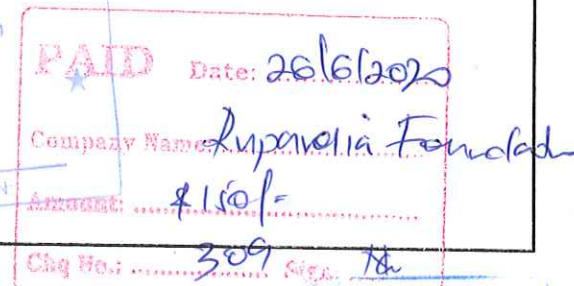 PAID Date: 26/6/2020
Company Name: Ruparelia Foundation
Amount: $150/-
Chq No.: 309 Sign.